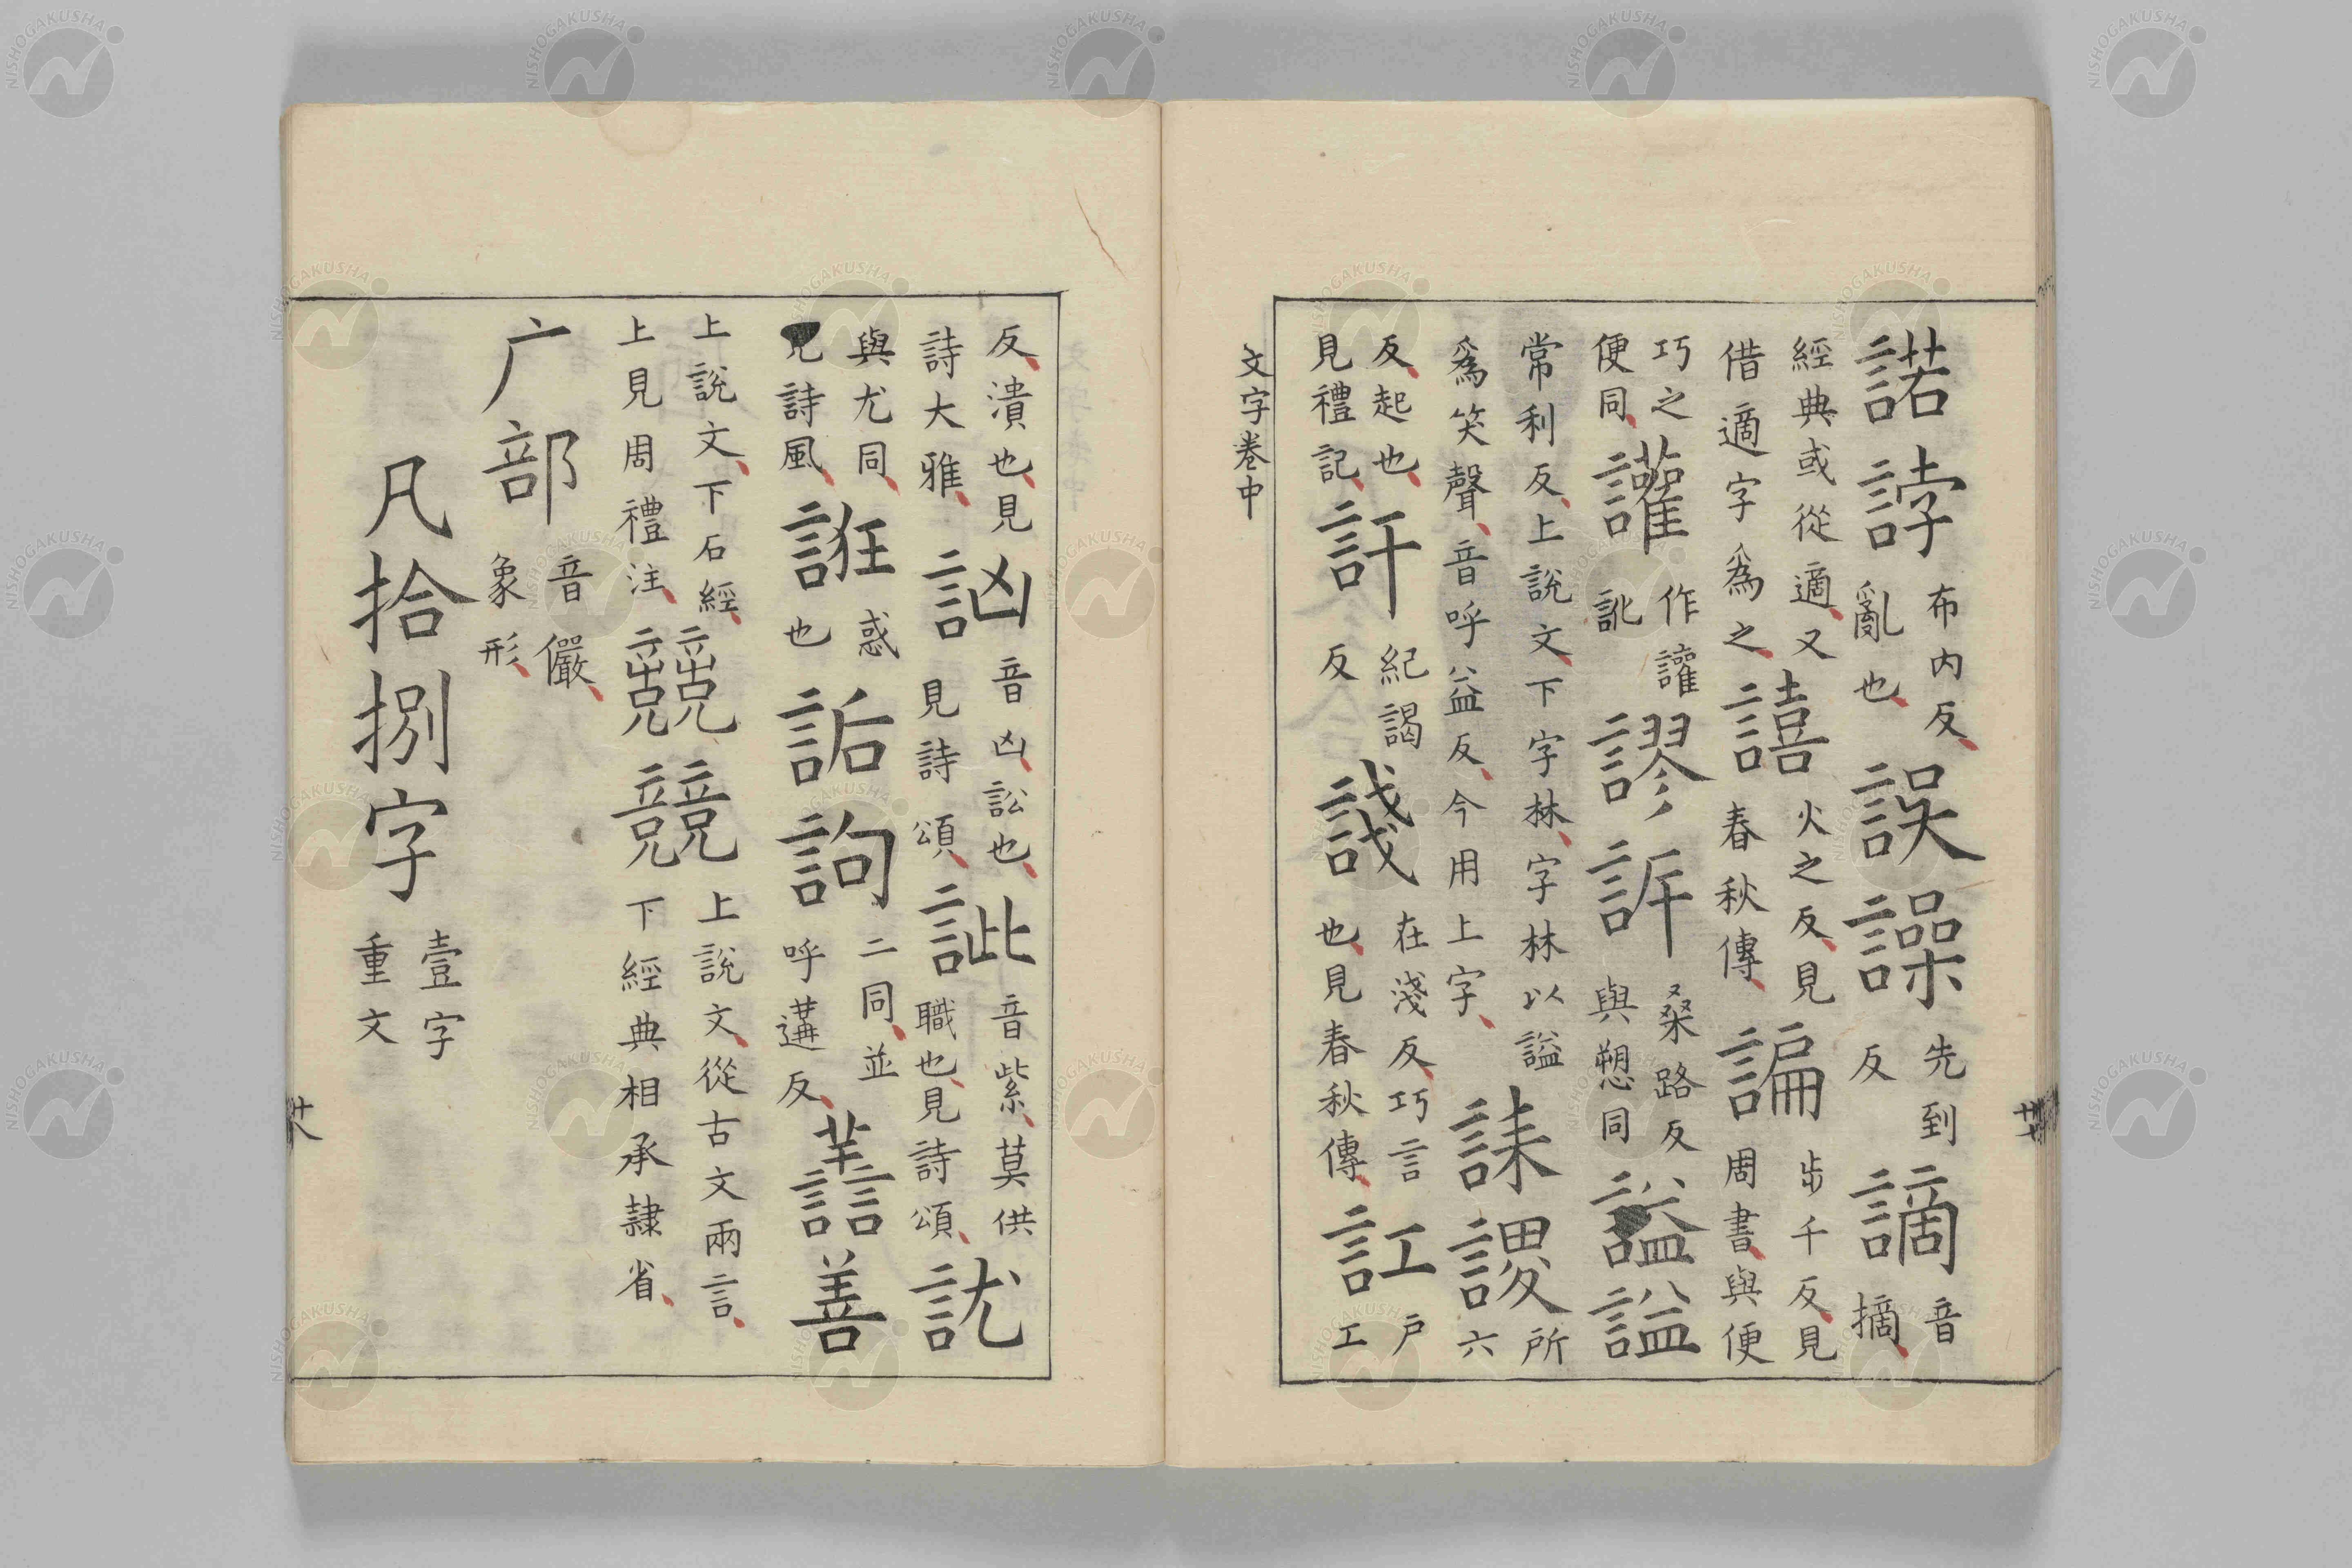 諾誖布内反亂也誤譟先到反謫音摘
經典或從適又借適字爲之譆火之反見春秋傳諞步千反見周書與便
巧之便同讙作讙訛謬訴桑路反與愬同諡謚
常利反上說文下字林字林以謚爲笑聲音呼益反今用上字誄謖所六
反起也見禮記訐紀謁反諓在淺反巧言也見春秋傳訌戸工
文字卷中
反潰也見詩大雅訩音凶訟也見詩頌訿音紫莫供職也見詩頌訧
與尤同見詩風誑惑也詬訽二同並呼遘反譱善
上說文下石經上見周禮注競上說文從古文兩言下經典相承隷省
广部音儼象形
凡拾捌字壹字重文
廿八